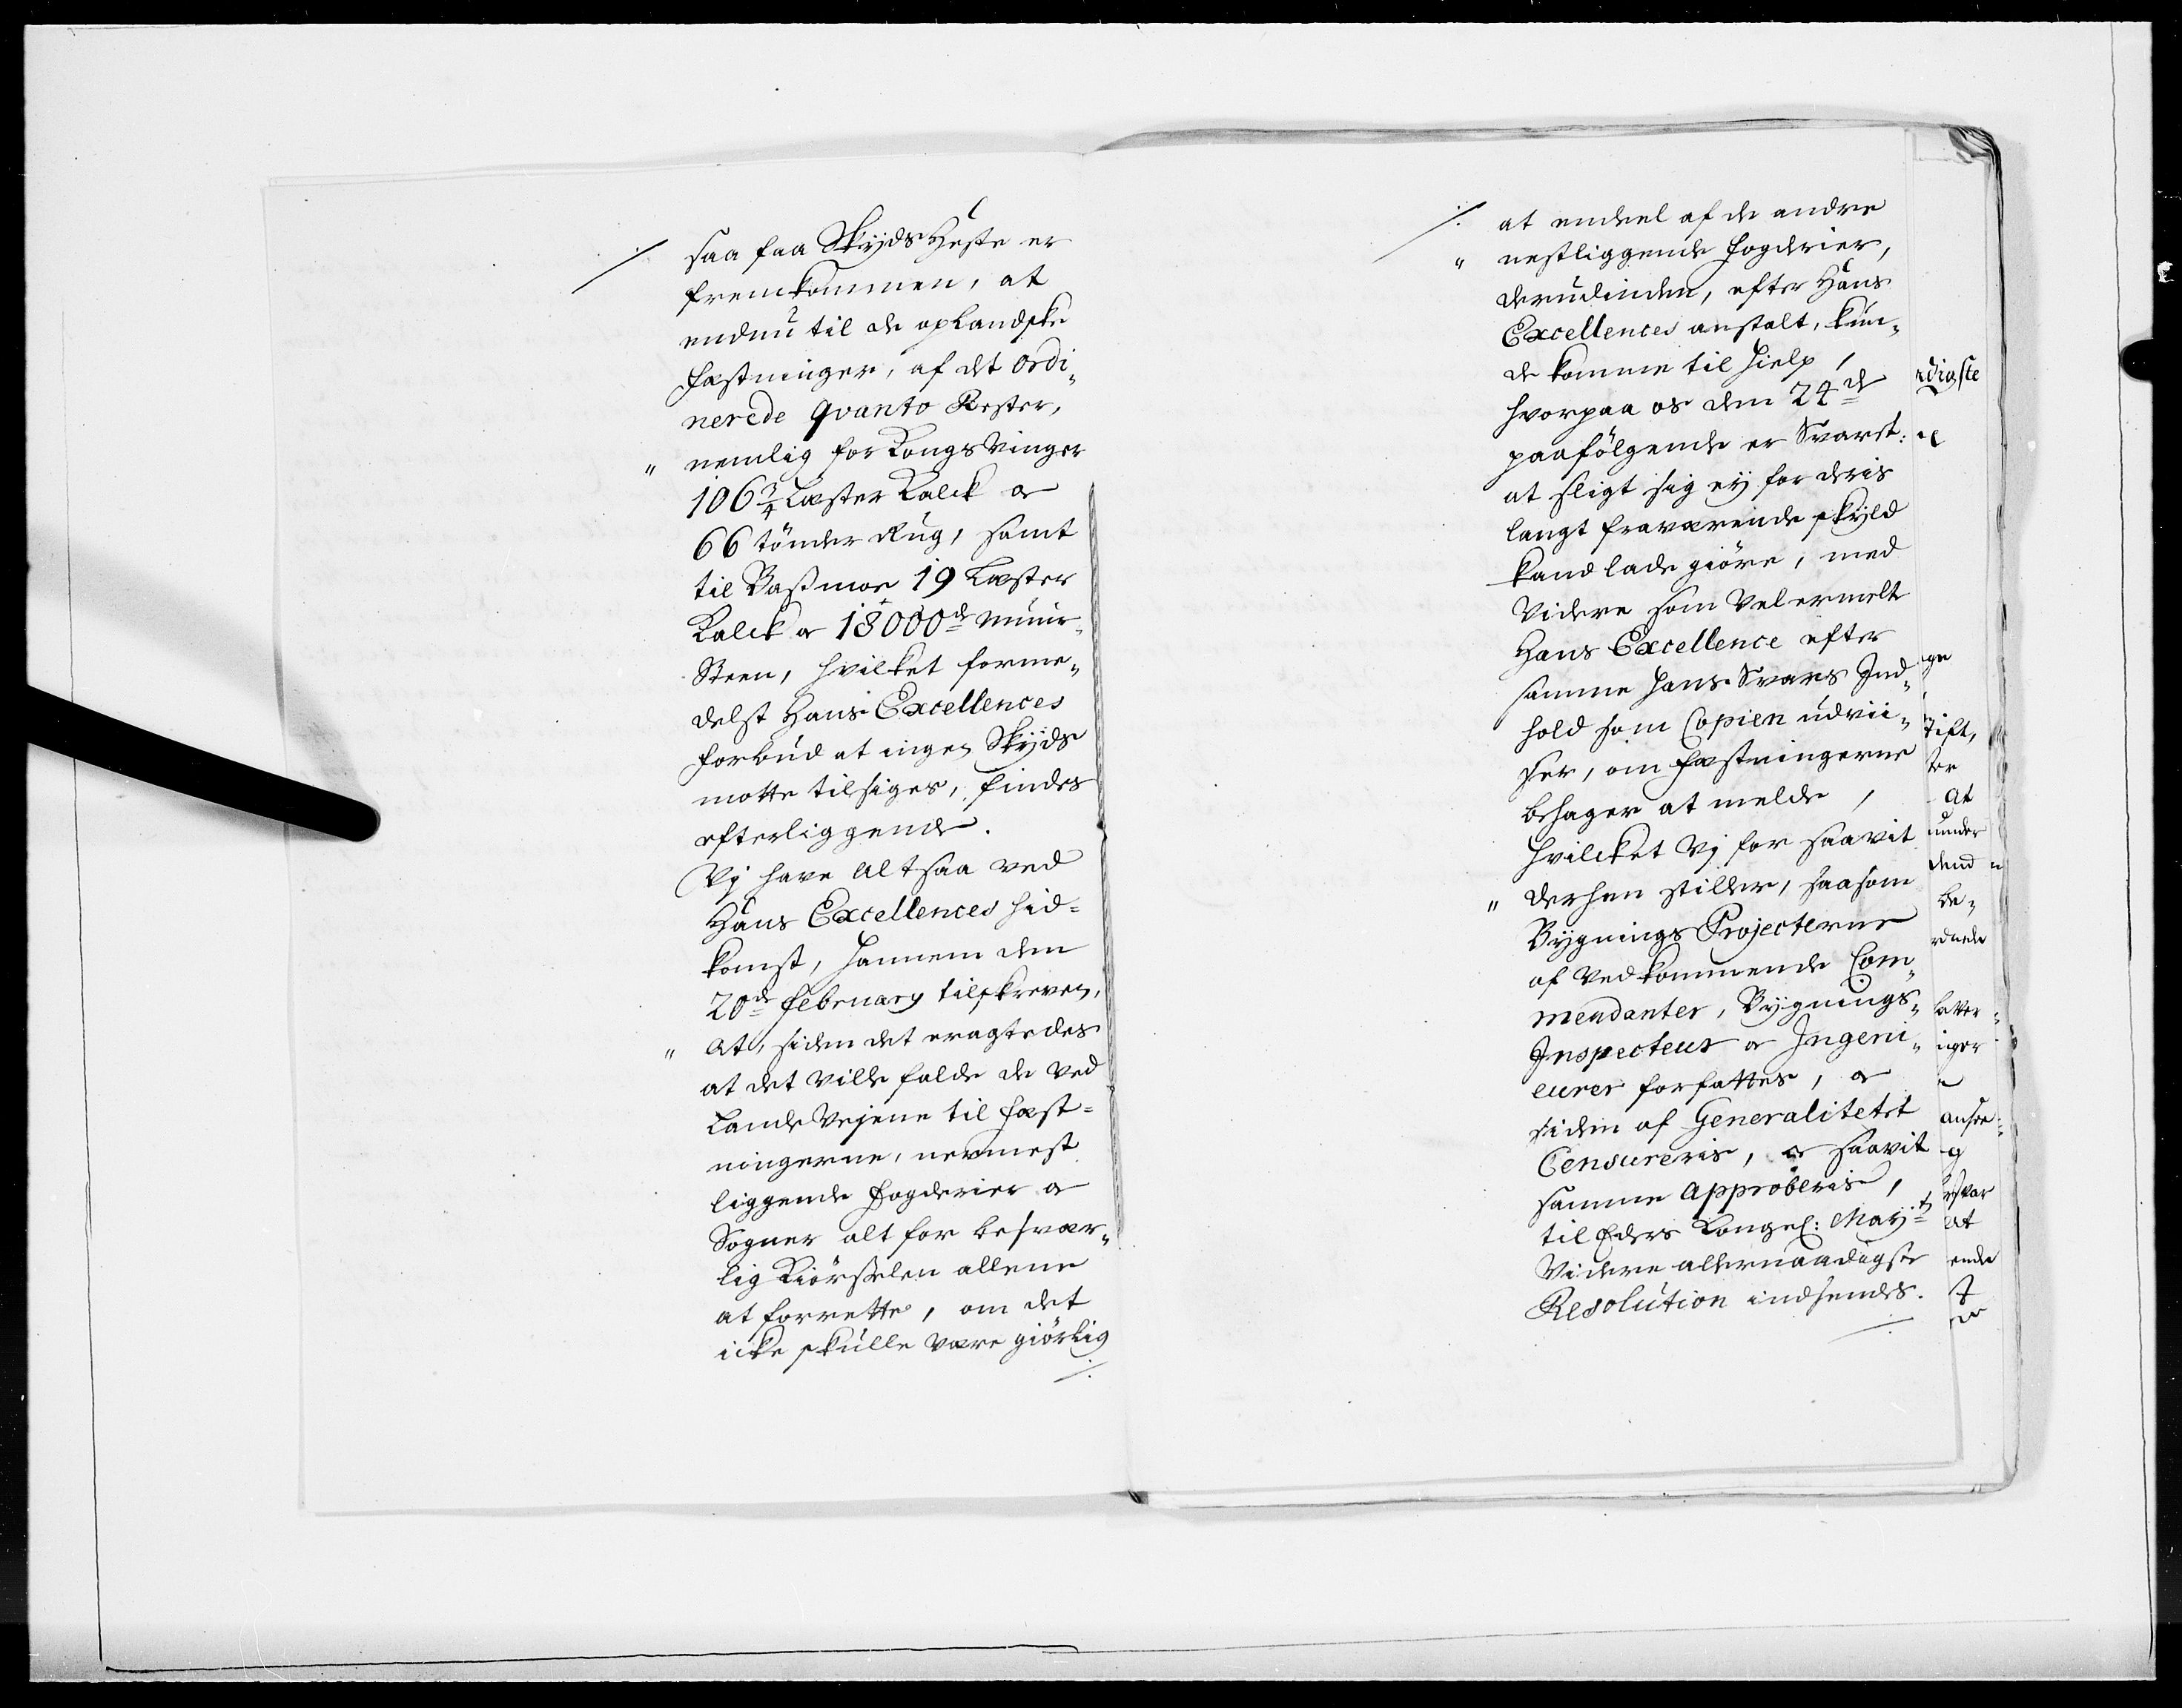 saa faa Skyds Heste er
fremkommen, at
endnu til de oplandske
Fæstninger, af det ordi„
nerede qvanto Rester,
„ nemlig for Kongs Vinger
106 3/4 Læster Kalck og
66 tönder Rug, samt
til Basmoe 19 Læster
Kalck og 18000de Muur„
Steen, hvilket forme„
delst Hans Excellences
forbud at ingen Skyds
motte tilsiges, findes
efterliggende.
Vj have altsaa ved
Hans Excellences hid=
komst, hannem den
20de February tilskreven,
„ At, siden det eragtedes
at det ville falde de ved
Lande Vejene til Fæst=
ningerne, nermest
liggende Fogderier og
Sogner alt for besvær„
lig Kiörselen allene
at forrette, om det
icke skulle være giörlig
./.
./. at endeel af de andre
„ nestliggende Fogderier,
derudinden, efter Hans
Excellences anstalt, kun„
de komme til hielp,
hvorpaa os den 24de
paafölgende er Svaret:
at sligt sig ey for deris
langt fraværende skyld
kand lade giöre, med
Videre som Velermelte
Hans Excellence efter
samme hans Svars Ind„
hold som Copien udvii„
ser, om Fæstningerne
behager at melde,
Hvilcket Vj for saavit
„ derhen stiller, saasom
Bygnings Projecterne
af Vedkommende Com„
mendanter, Bygnings„
Inspecteur og Ingeni„
eurer forfattes, og
siden af Generalitetet
Censureris, og saavit
samme approberis,
til Eders Kongel: Mayts
Videre allernaadigste
Resolution indsendes.
./.